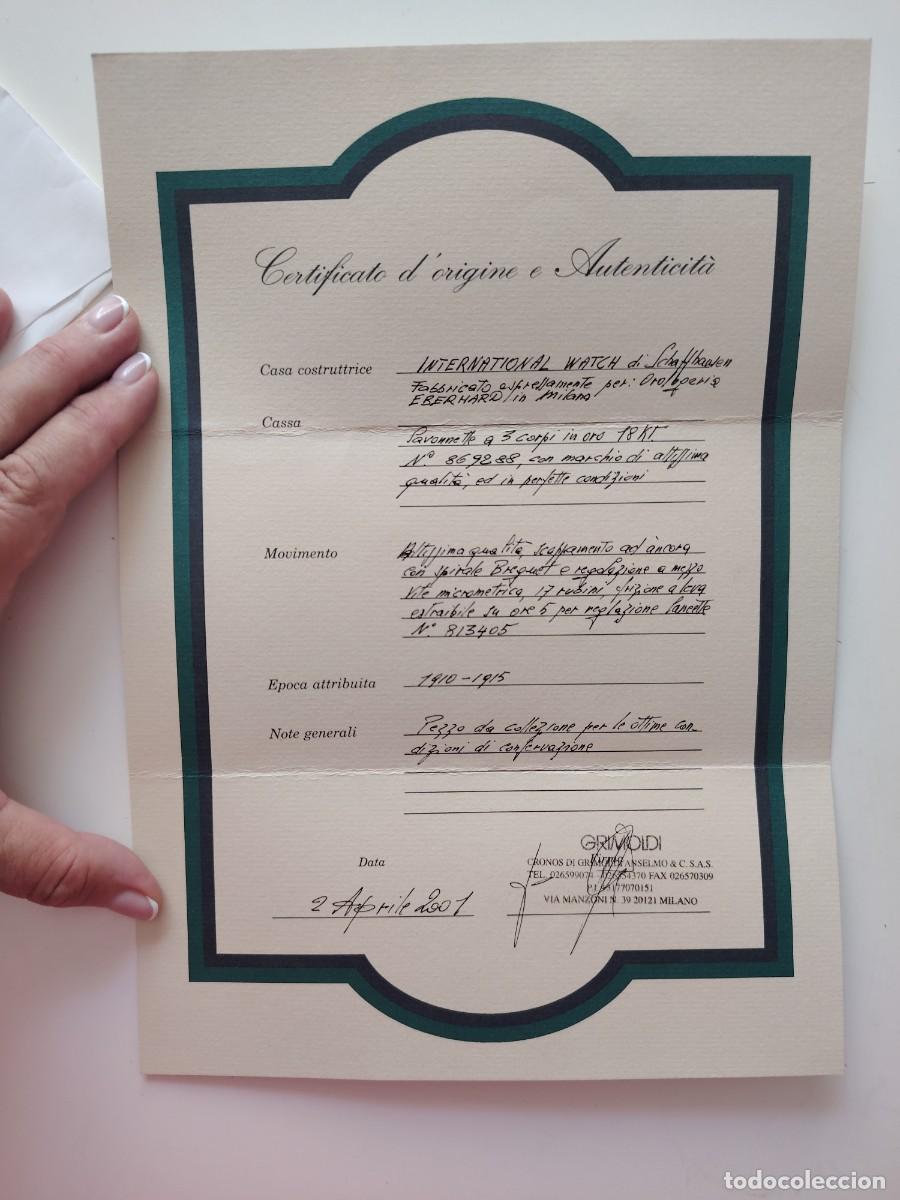 Certificato d'origine e Autenticità
Casa costruttrice INTERNATIONAL WATCH di Schaffhausen
Fabbricato espressamente per: Orologeria
EBERHARD in Milano
Cassa
Savonnette a 3 corpi in oro 18 KT
N° 869288, con marchio di altissima
qualità, ed in perfette condizioni
Movimento Altissima qualità, scappamento ad àncora
con spirale Breguet e regolazione a mezzo
vite micrometrica, 17 rubini, frizione a leva
estraibile su ore 5 per reglazione lancette
N° 813405
Epoca attribuita 1910-1915
Note generali Pezzo da collezione per le ottime con-
dizioni di conservazione
GRIMOLDI
Data
CRONOS DI GRIMOLDI ANSELMO & C. S.A.S.
TEL. 026599074 FAX 026570309
VIA MANZONI N. 39 20121 MILANO
2 Aprile 2001
todocoleccion